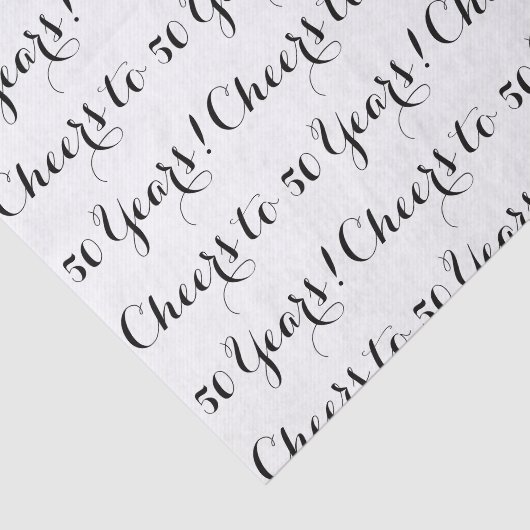 ears!
Cheers to 50 Years
50 Years! Cheers to
Cheers to 50 Years! Cheers
50 Years! Cheers to 50
Cheers to 50 Years